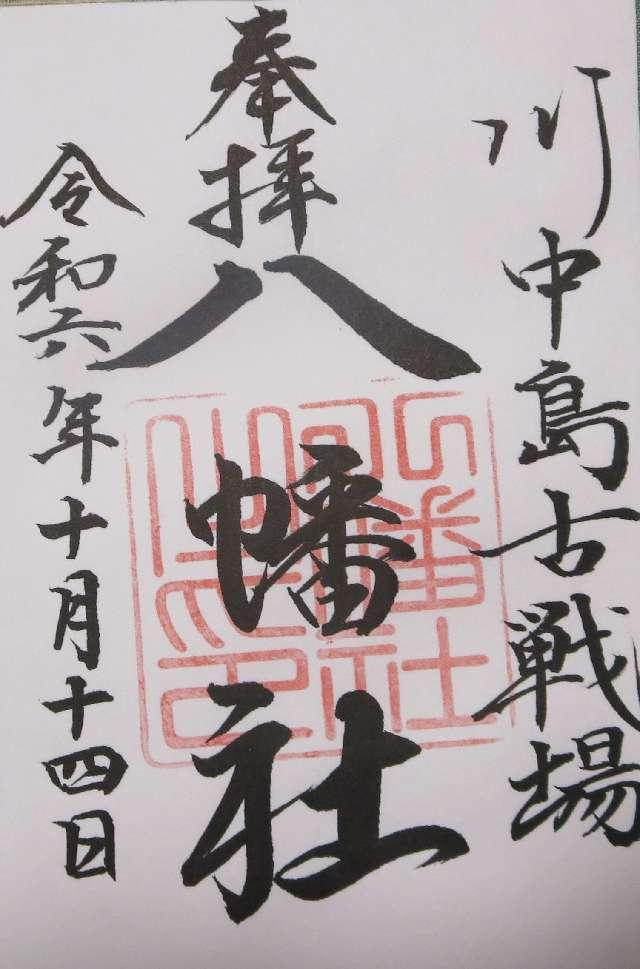 川中島古戦場
奉拝
八幡社
令和六年十月十四日